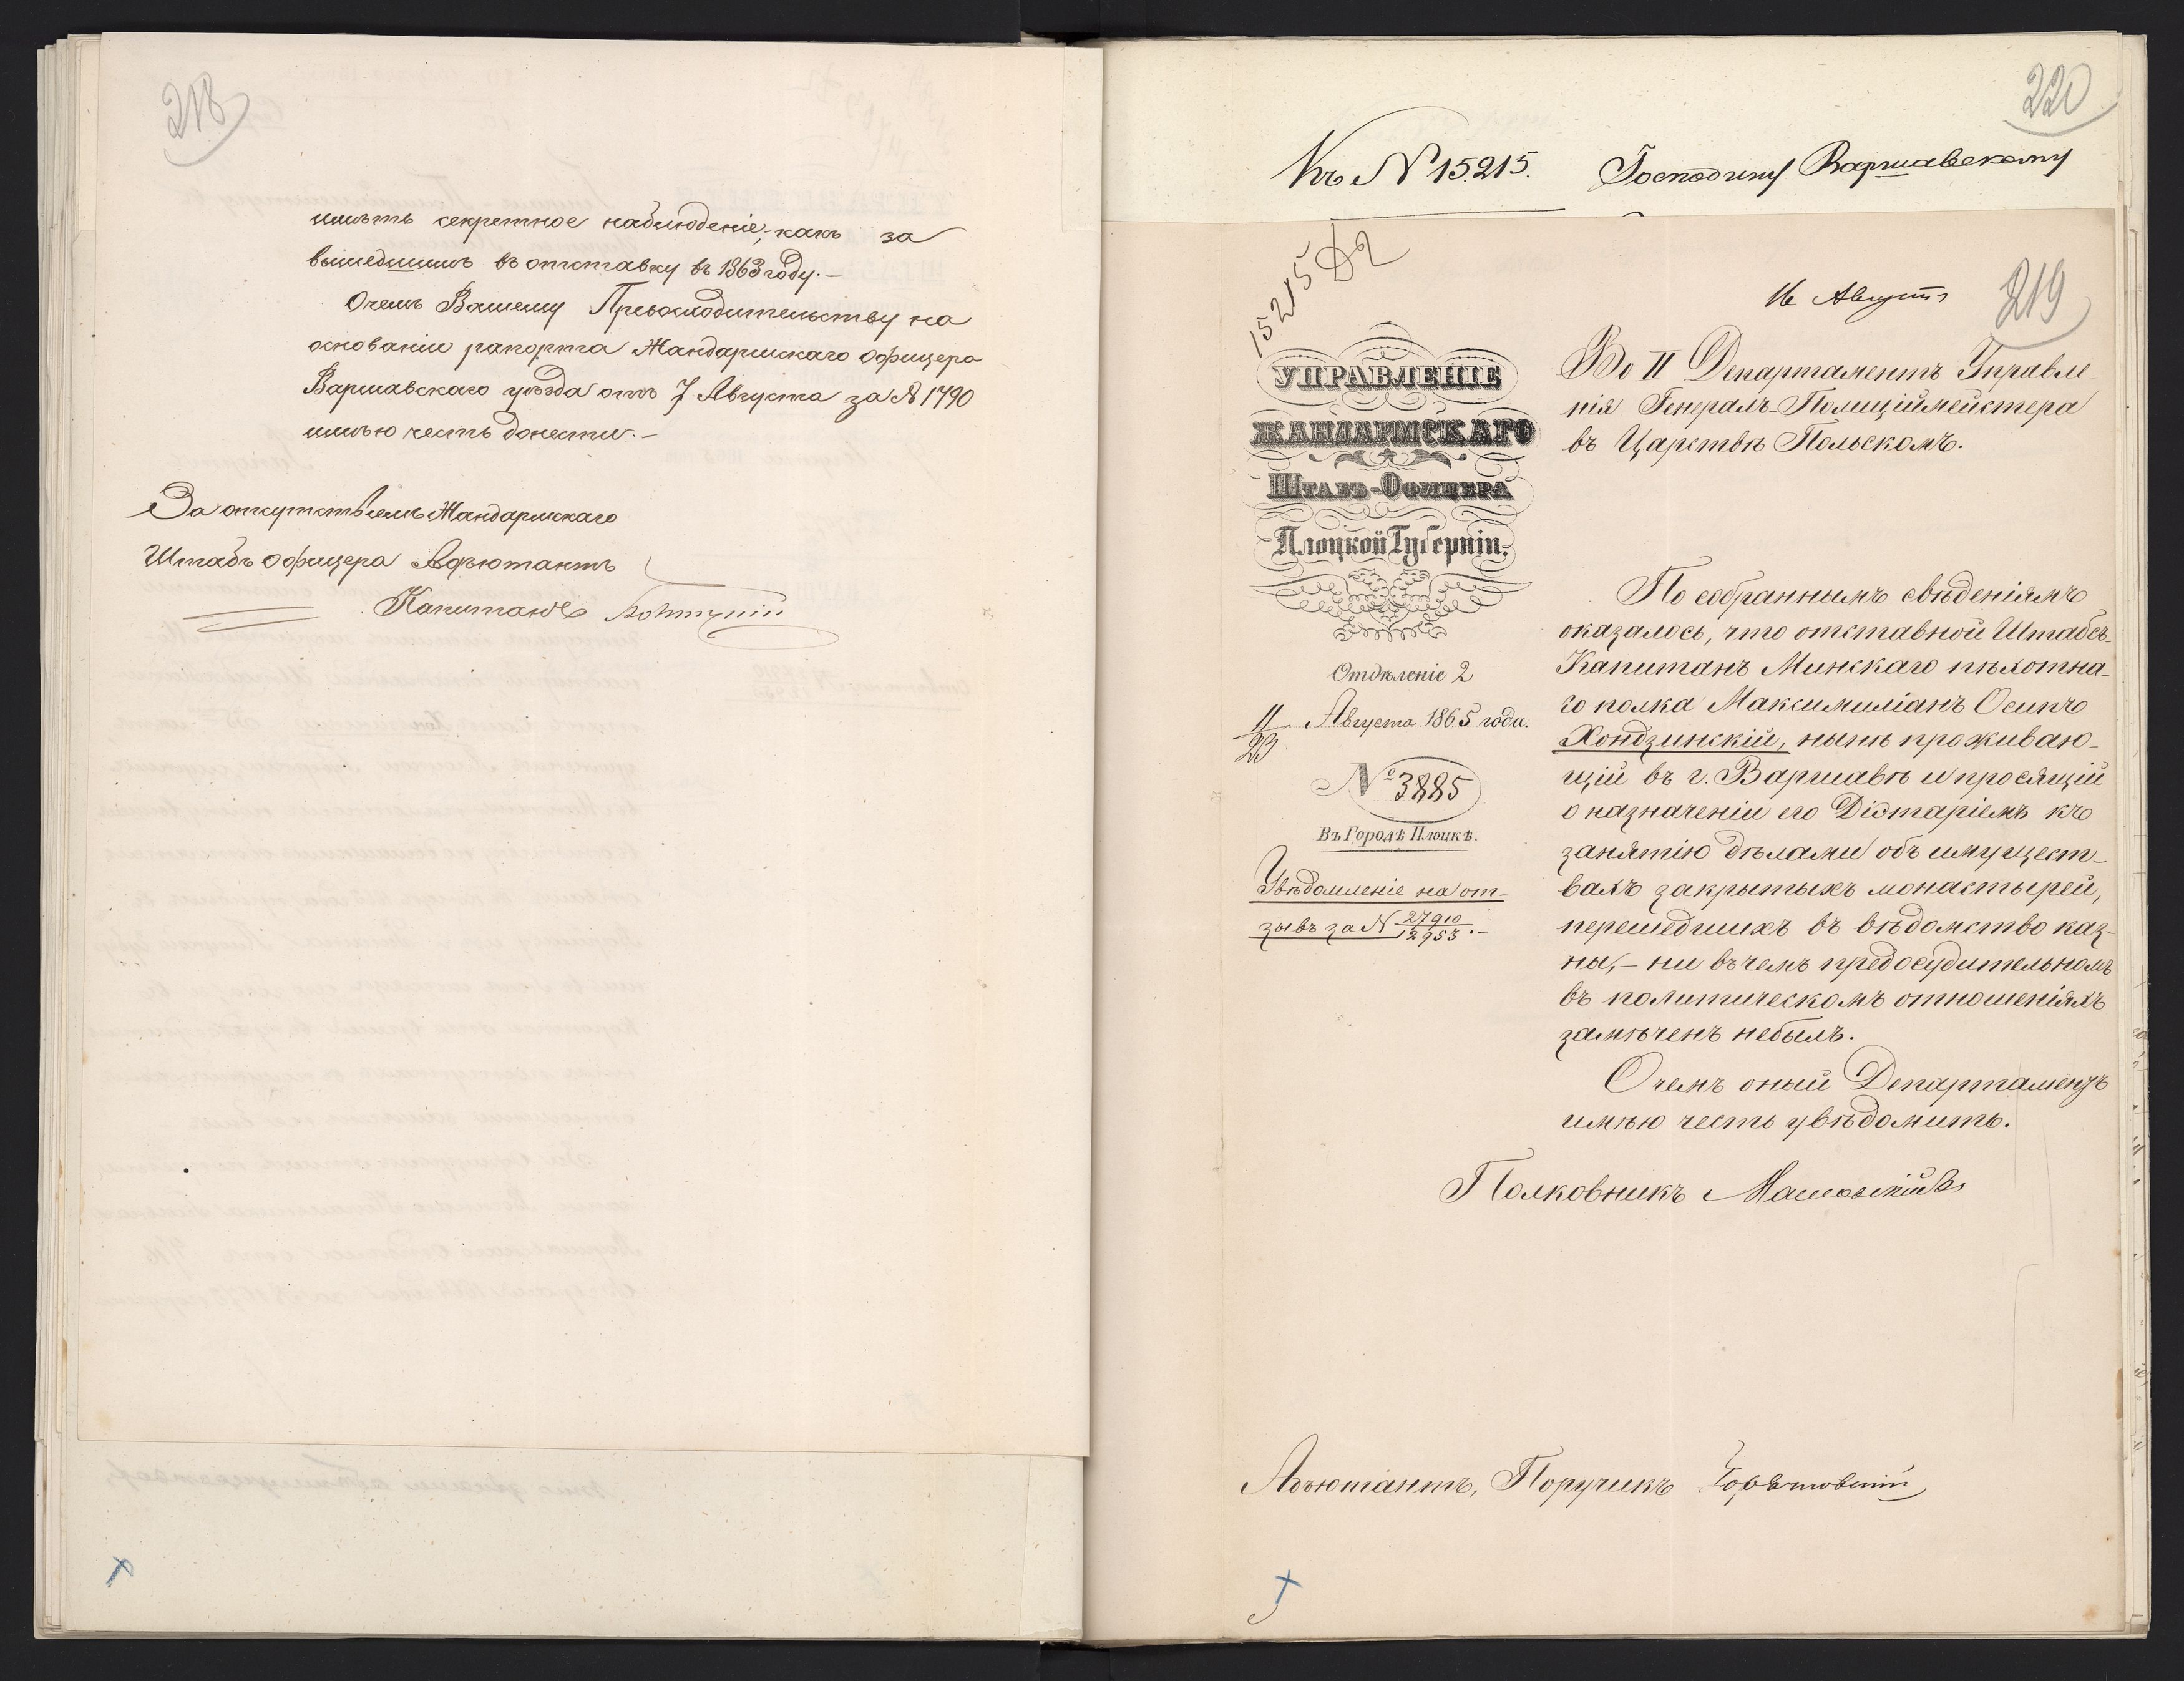 218
имѣть секретное наблюденіе, какъ за
вышедшимъ въ отставку въ 1863 году.-
Очемъ Вашему Превосходительству на
основаніи рапорта Жандармскаго офицера
Варшавскаго уѣзда отъ 7 Августа за № 1790
имѣю честь донести.-
За отсутствіемъ Жандармскаго
Штабъ офицера Адъютантъ
Капитанъ
220
Къ № 15.215. Господину Варшавскому
15215
16 Августа
219
УПРАВЛЕНІЕ
ЖАНДАРМСКАГО
ШТАБЪ-ОФИЦЕРА
Плоцкой Губерніи.
Отдѣленіе 2
11/23 Августа 1865 года.
№ 3885
Въ Городѣ Плоцкѣ.
Увѣдомленіе на от-
зывъ за № 27910/12953.-
Во II Департаментъ Управле-
нія Генералъ-Полиціймейстера
въ Царствѣ Польскомъ.
По собраннымъ свѣденіямъ
оказалось, что отставной Штабсъ-
Капитанъ Минскаго пѣхотна-
го полка Максимиліанъ Осипъ
Хондзинскій, нынѣ проживаю-
щій въ г. Варшавѣ и просящій
о назначеніи его Діэтаріемъ къ
занятію дѣлами объ имущест-
вахъ закрытыхъ монастырей,
перешедшихъ въ вѣдомство каз-
ны,- ни въ чемъ предосудительномъ
въ политическомъ отношеніяхъ
замѣченъ небылъ.
Очемъ оный Департаментъ
имѣю честь увѣдомить.
Полковникъ
Адъютантъ, Поручикъ